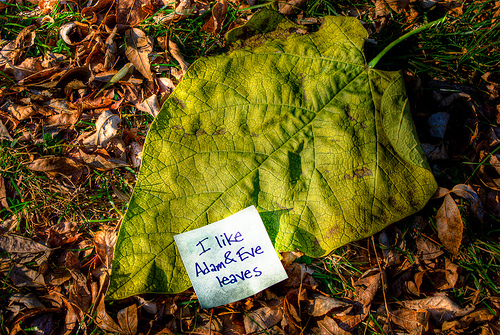 I like
Adam & Eve
leaves